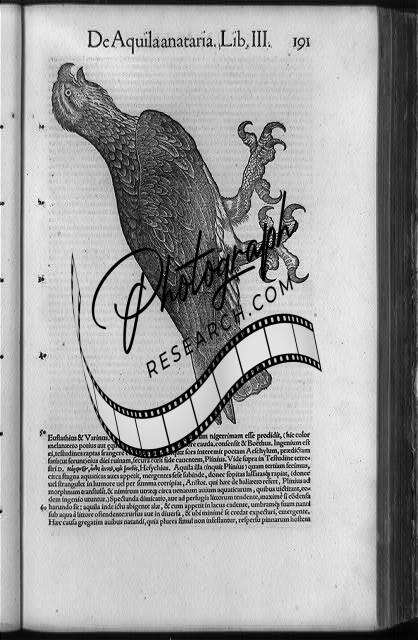 De Aquila anataria. Lib. III. 191
Photograph
RESEARCH.COM
50
Eustathius & Varinus, nigerrimam esse prodidit, (hic color
melanæeto potius aut cauda, consensit & Boethus. Ingenium est
ei, testudines raptas frangere sors interemit poetam Aeschylum, prædictam
fatis (ut ferunt) eius diei ruinam, secura cœli fide cauentem, Plinius. Vide supra in Testudine terre-
stri D. Hesychius. Aquila illa (inquit Plinius) quam tertiam fecimus,
circa stagna aquaticas aues appetit, mergentes sese subinde, donec sopitas lassatasq; rapiat, (donec
uel strangulet in humore uel per summa corripiat, Aristot. qui hæc de haliæeto refert, Plinius ad
morphnum transtulit, & nimirum utræq; circa uenatum auium aquaticarum, quibus uictitant, eo-
dem ingenio utuntur.) Spectanda dimicatio, aue ad perfugia litorum tendente, maximè si condensa
60 harundo sit: aquila inde ictu abigente alæ, & cum appetit in lacus cadente, umbramq; suam nanti
sub aqua à littore ostendente: rursus aue in diuersa, & ubi minimè se credat expectari, emergente.
Hæc causa gregatim auibus natandi, quia plures simul non infestantur, respersu pinnarum hostem